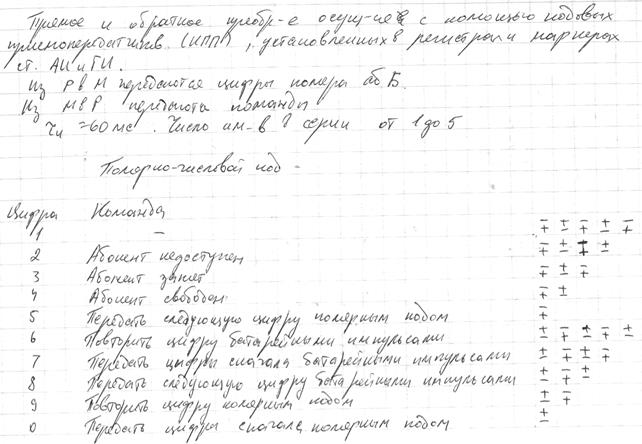 Прямое и обратное преобр-е осущ-ие с помощью кодовых
приемопередатчиков (КПП), установленных в регистрах и маркерах
ст. АИ и ГИ.
Из Р в М передаются цифры номера аб Б.
Из М в Р передаются команды
τи =60 мс. Число им-в в серии от 1 до 5
Полярно-числовой код -
Цифра Команда
1 - ∓ ± ∓ ± ∓
2 Абонент недоступен ∓ ± ∓ ±
3 Абонент занят ∓ ± ∓
4 Абонент свободен ∓ ±
5 Передать следующую цифру полярным кодом ∓
6 Повторить цифру батарейными импульсами ± ∓ ± ∓ ±
7 Передать цифры сначала батарейными импульсами ± ∓ ± ∓
8 Передать следующую цифру батарейными импульсами ± ∓ ±
9 Повторить цифру полярным кодом ± ∓
0 Передать цифры сначала полярным кодом ±